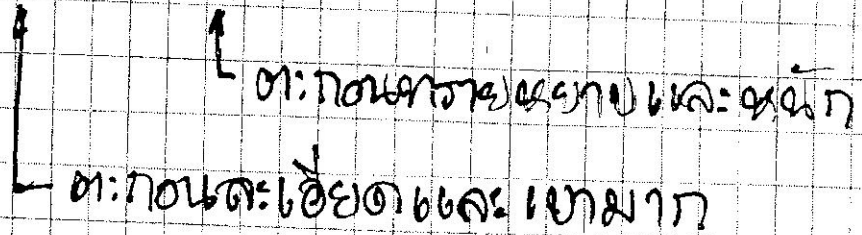 ตะกอนทรายหยาบและหนัก
ตะกอนละเอียดและเบามาก